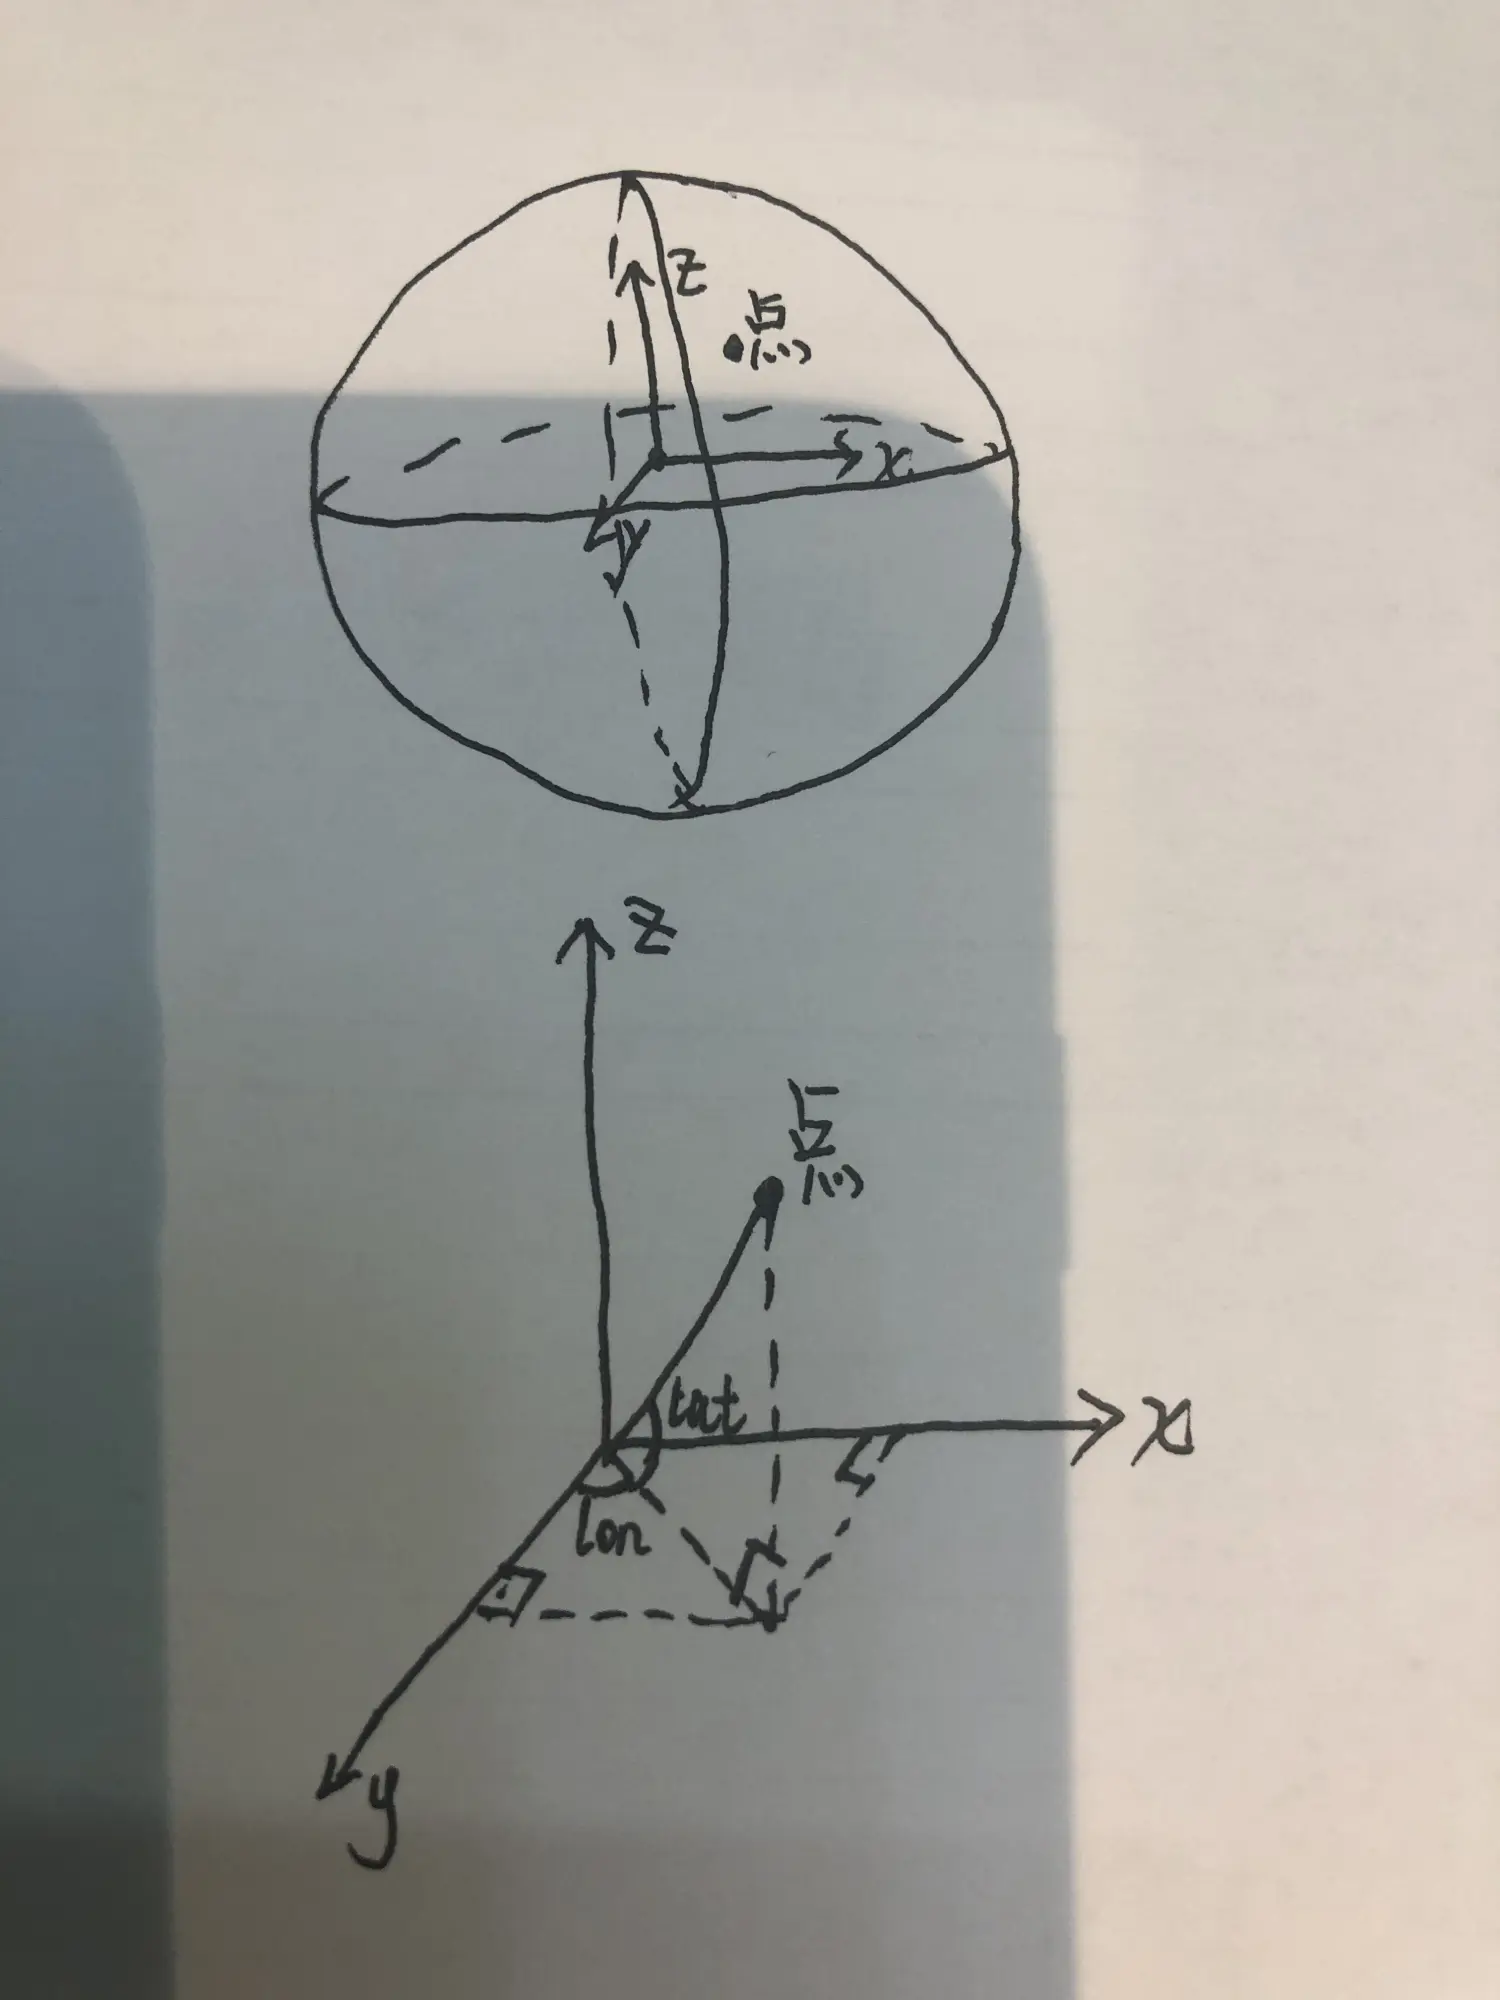 z
点
x
y
z
点
lat
x
lon
y